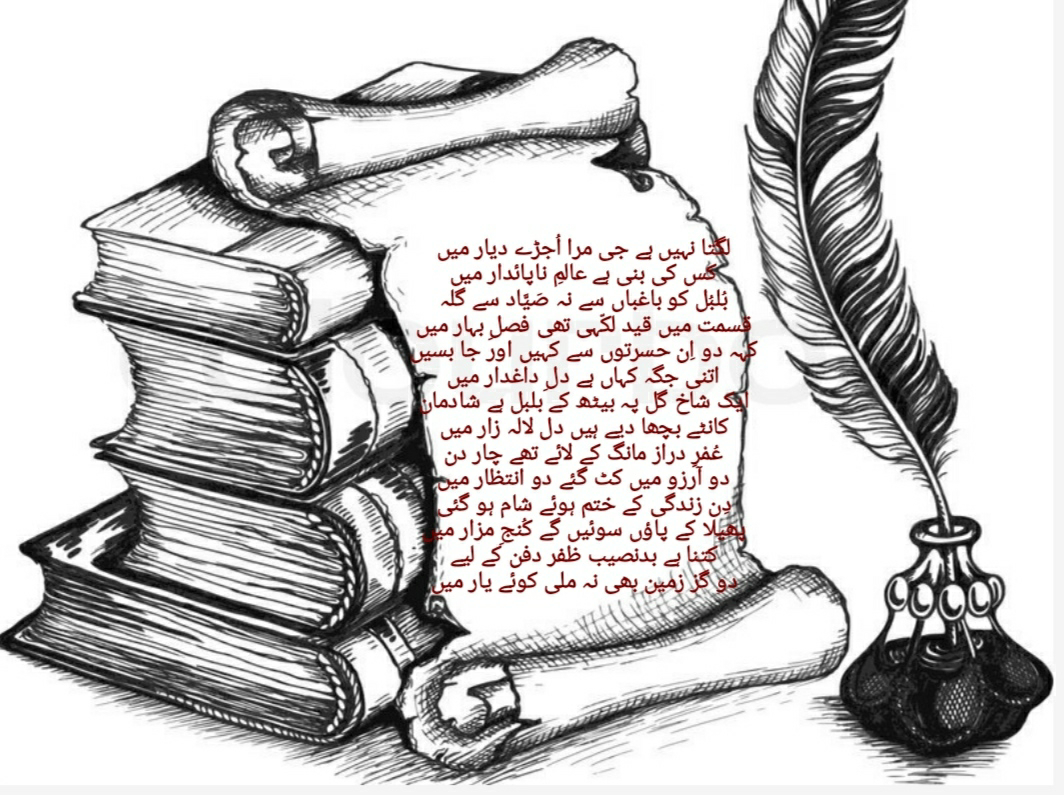 لگتا نہیں ہے جی مرا اُجڑے دیار میں
کس کی بنی ہے عالمِ ناپائدار میں
بُلبُل کو باغباں سے نہ صَیّاد سے گلہ
قسمت میں قید لکّھی تھی فصلِ بہار میں
کہہ دو اِن حسرتوں سے کہیں اور جا بسیں
اتنی جگہ کہاں ہے دلِ داغدار میں
ایک شاخ گل پہ بیٹھ کے بلبل ہے شادمان
کانٹے بچھا دیے ہیں دل لالہ زار میں
عُمرِ دراز مانگ کے لائے تھے چار دن
دو آرزو میں کٹ گئے دو انتظار میں
دِن زندگی کے ختم ہوئے شام ہو گئی
پھیلا کے پاؤں سوئیں گے کُنجِ مزار میں
کتنا ہے بدنصیب ظفر دفن کے لیے
دو گز زمین بھی نہ ملی کوئے یار میں